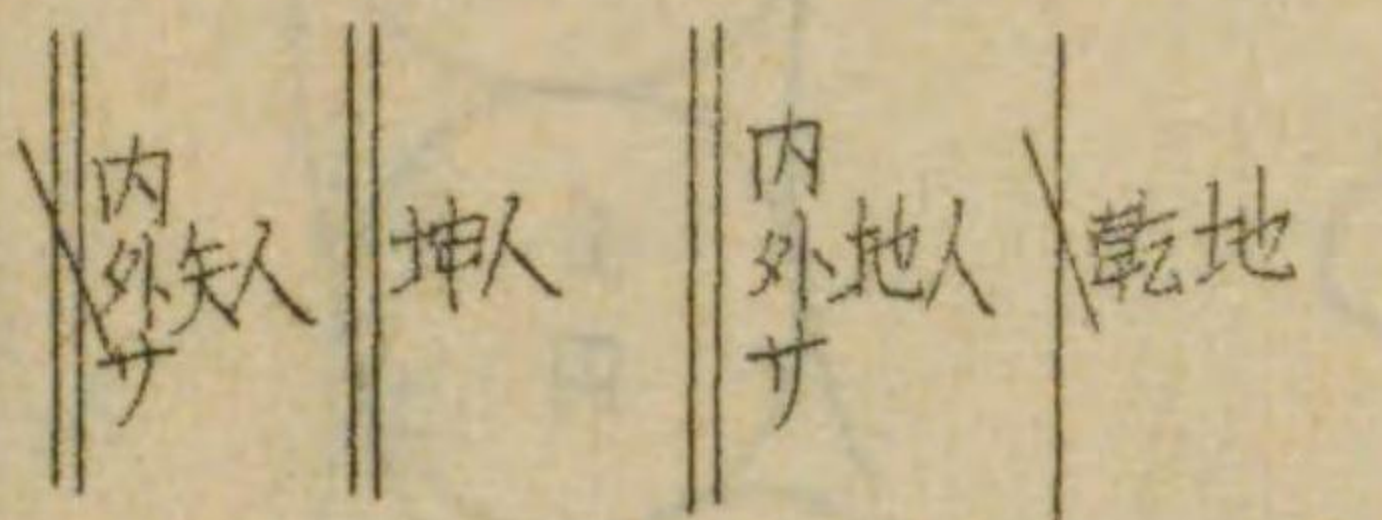 乾地
内外サ地人
坤人
内外サ矢人